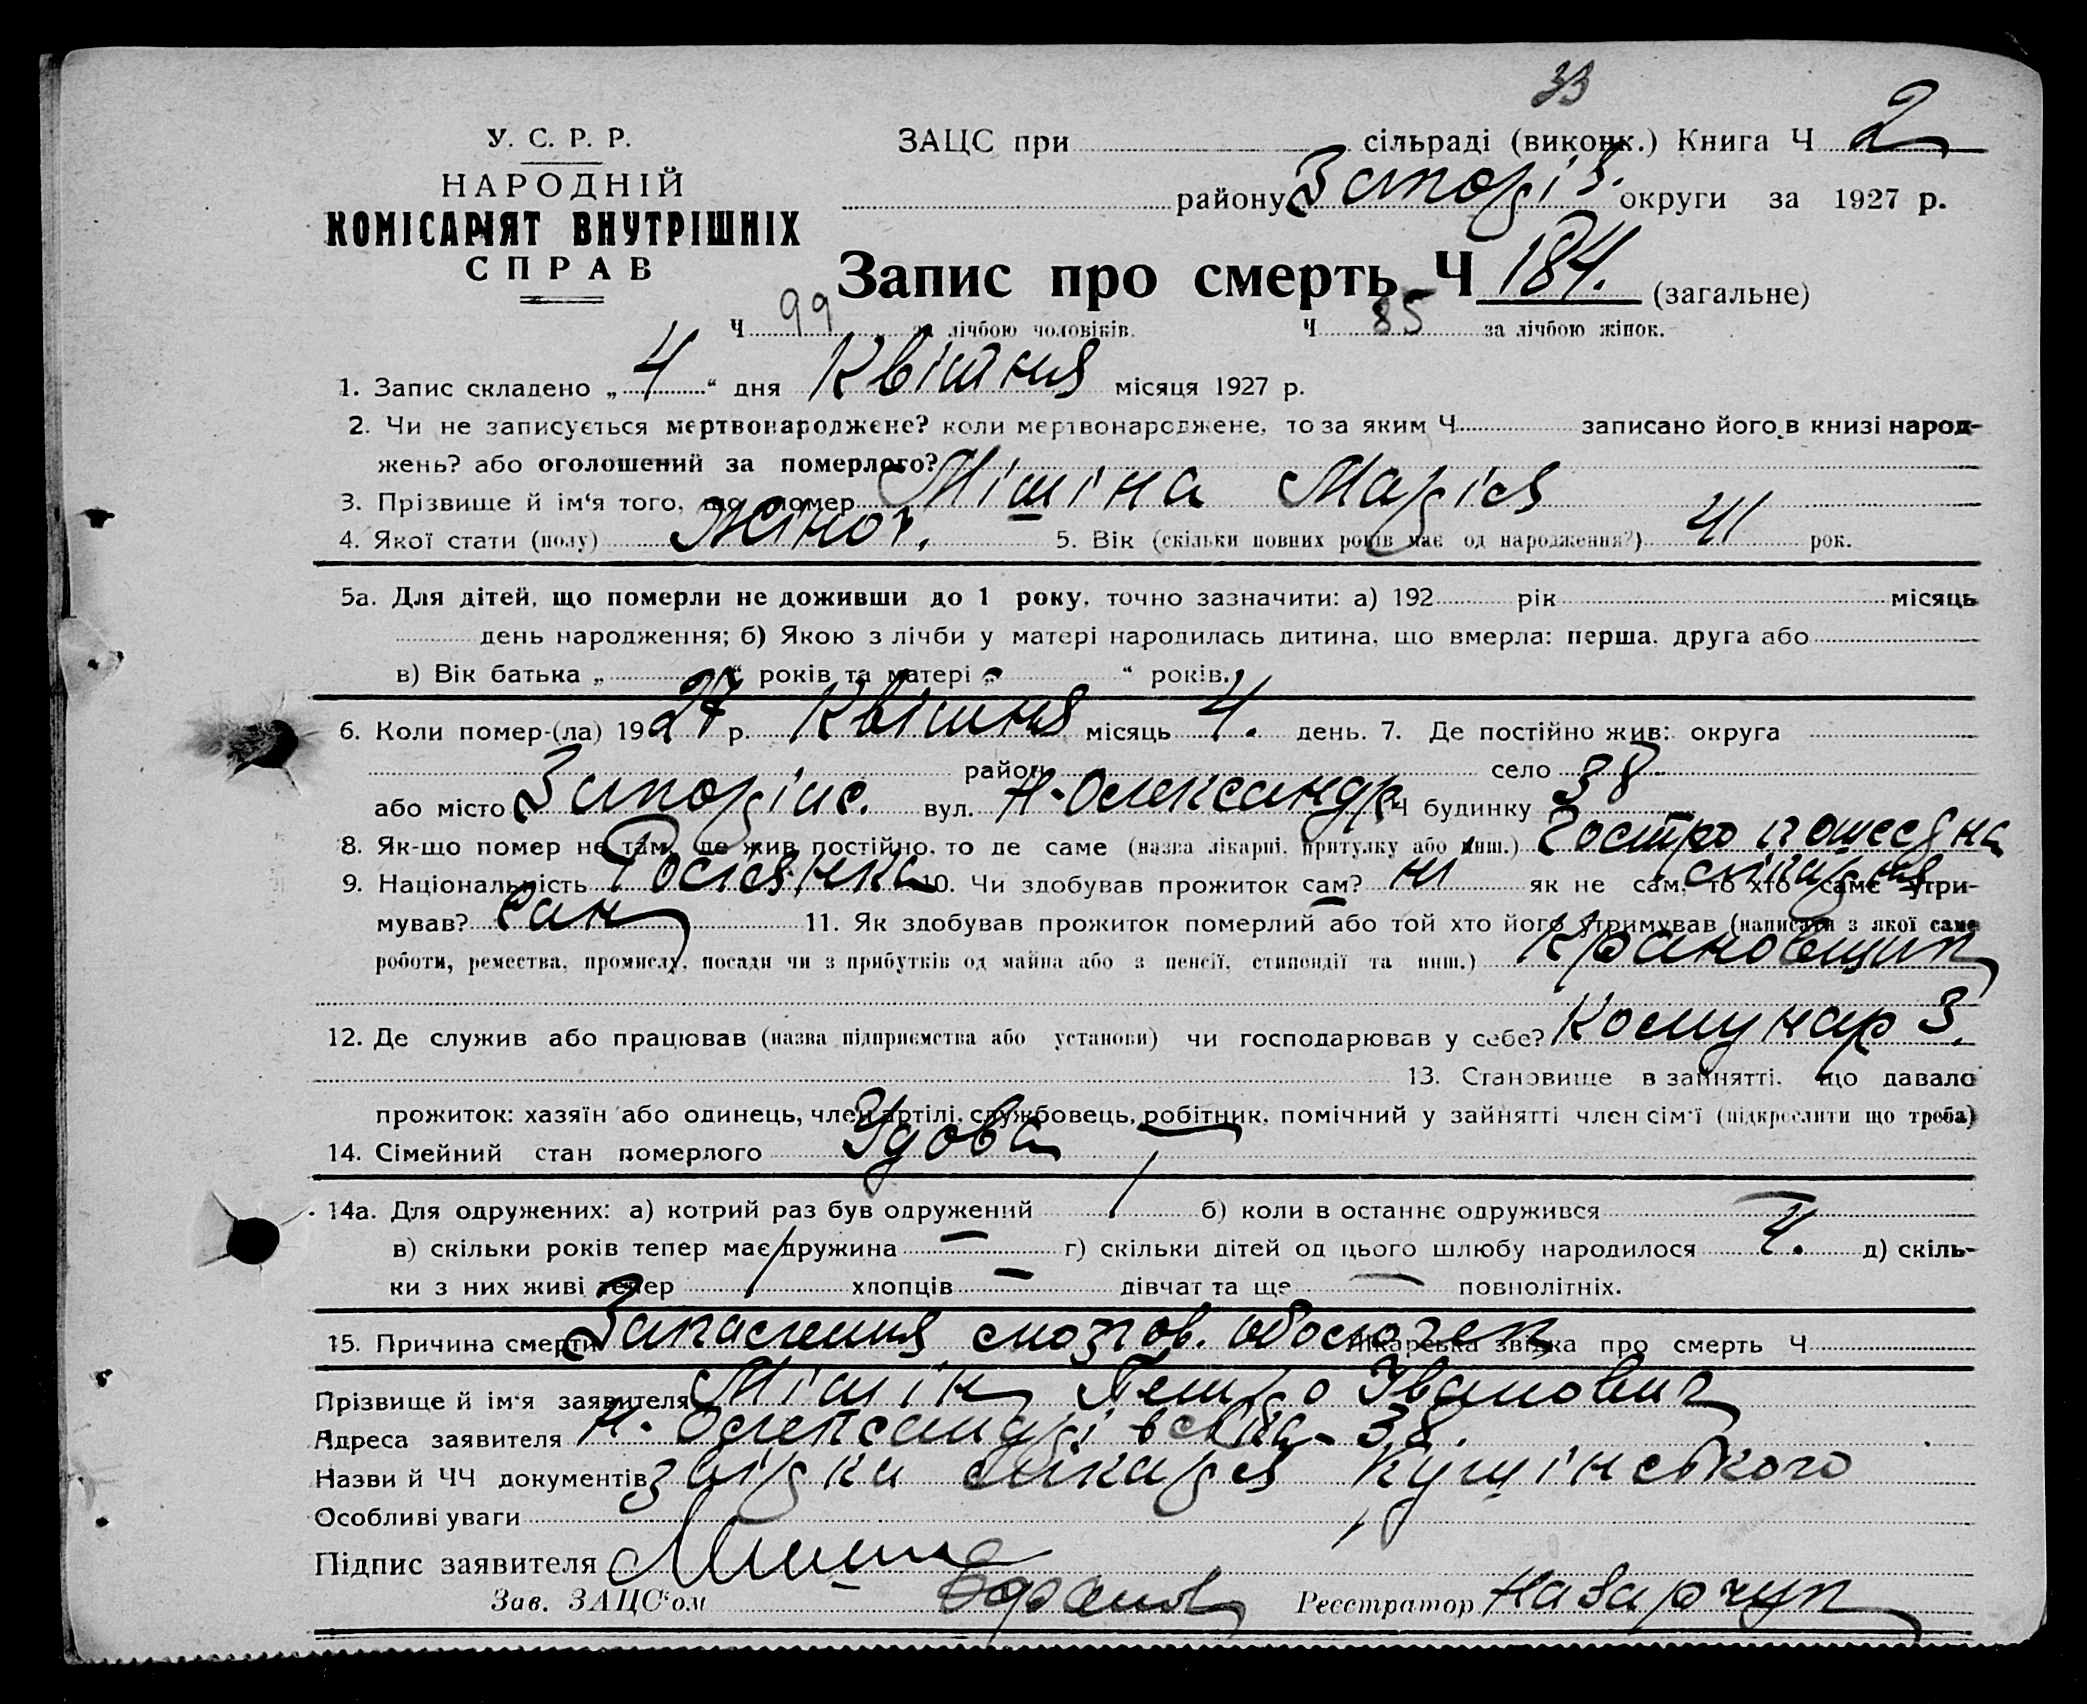 33
У. С. Р. Р.
НАРОДНІЙ
КОМІСАРІЯТ ВНУТРІШНІХ
СПРАВ
ЗАЦС при сільраді (виконк.) Книга Ч 2
району Запоріз. округи за 1927 р.
Запис про смерть Ч 184. (загальне)
Ч 99 за лічбою чоловіків. Ч 85 за лічбою жінок.
1. Запис складено „4“ дня Квітня місяця 1927 р.
2. Чи не записується мертвонароджене? коли мертвонароджене, то за яким Ч записано його в книзі народ-
жень? або оголошений за померлого?
3. Прізвище й ім'я того, що помер Мішіна Марія
4. Якої стати (полу) Жіноч. 5. Вік (скільки повних років має од народження?) 41 рок.
5а. Для дітей, що померли не доживши до 1 року, точно зазначити: а) 192 рік місяць
день народження; б) Якою з лічби у матері народилась дитина, що вмерла: перша, друга або
в) Вік батька „ “ років та матері „ “ років.
6. Коли помер-(ла) 1927 р. Квітня місяць 4. день. 7. Де постійно жив: округа
район село
або місто Запоріж. вул. Н-Олександр Ч будинку 38
8. Як-що помер не там, де жив постійно, то де саме (назва лікарні, притулку або инш.) Гостро пошесяна
лікарня
9. Національність Росіянка 10. Чи здобував прожиток сам? ні як не сам, то хто саме утри-
мував? Син 11. Як здобував прожиток померлий або той хто його утримував (написати з якої саме
роботи, ремества, промислу, посади чи з прибутків од майна або з пенсії, стипендії та инш.) Крановщик
12. Де служив або працював (назва підприємства або установи) чи господарював у себе? Комунар З.
13. Становище в зайнятті, що давало
прожиток: хазяїн або одинець, член артілі, службовець, робітник, помічний у зайнятті член сім'ї (підкреслити що треба)
14. Сімейний стан померлого Удова
14а. Для одружених: а) котрий раз був одружений 1 б) коли в останнє одружився —
в) скільки років тепер має дружина — г) скільки дітей од цього шлюбу народилося 4. д) скіль-
ки з них живі тепер 1 хлопців — дівчат та ще — повнолітніх.
15. Причина смерти Запалення мозгов. оболочек Лікарська звістка про смерть Ч
Прізвище й ім'я заявителя Мішін Петро Іванович
Адреса заявителя Н. Олександрівська 38.
Назви й ЧЧ документів лікаря
Особливі уваги
Підпис заявителя
Зав. ЗАЦС'ом
Реєстратор Назарчук